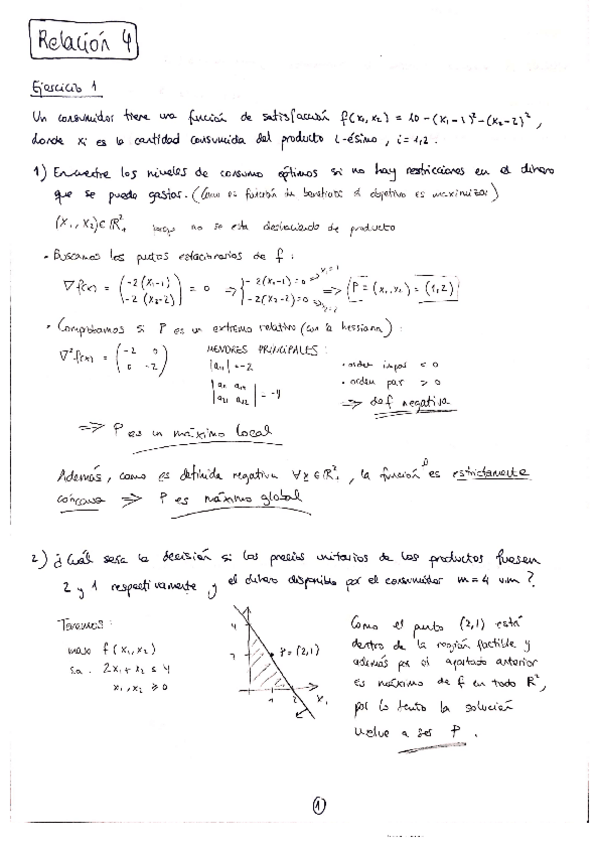 Relación 4
Ejercicio 1
Un consumidor tiene una función de satisfacción f(x₁,x₂) = 10 - (x₁-1)² - (x₂-2)²,
donde xi es la cantidad consumida del producto i-ésimo, i=1,2.
1) Encuentre los niveles de consumo óptimos si no hay restricciones en el dinero
que se puede gastar. (Como es función de beneficios el objetivo es maximizar)
(x₁, x₂) ∈ ℝ²₊ porque no se está deshaciendo de producto
· Buscamos los puntos estacionarios de f :
∇f(x) = (-2(x₁-1) / -2(x₂-2)) = 0 → { -2(x₁-1)=0 ⇒ x₁=1 / -2(x₂-2)=0 ⇒ x₂=2 ⇒ P = (x₁,x₂) = (1,2)
· Comprobamos si P es un extremo relativo (con la hessiana) :
∇²f(x) = (-2 0 / 0 -2)
MENORES PRINCIPALES :
|a₁₁| = -2
|a₁₁ a₁₂ / a₂₁ a₂₂| = -4
· orden impar < 0
· orden par > 0
⇒ def negativa
⇒ P es un máximo local
Además, como es definida negativa ∀x ∈ ℝ²₊, la función es estrictamente
cóncava ⇒ P es máximo global
2) ¿Cuál sería la decisión si los precios unitarios de los productos fuesen
2 y 1 respectivamente y el dinero disponible por el consumidor m=4 u.m?
Tenemos :
max f(x₁,x₂)
s.a. 2x₁+x₂ ≤ 4
x₁,x₂ ≥ 0
4
P=(2,1)
1 2 x₁
Como el punto (2,1) está
dentro de la región factible y
además por el apartado anterior
es máximo de f en todo ℝ²,
por lo tanto la solución
vuelve a ser P.
1